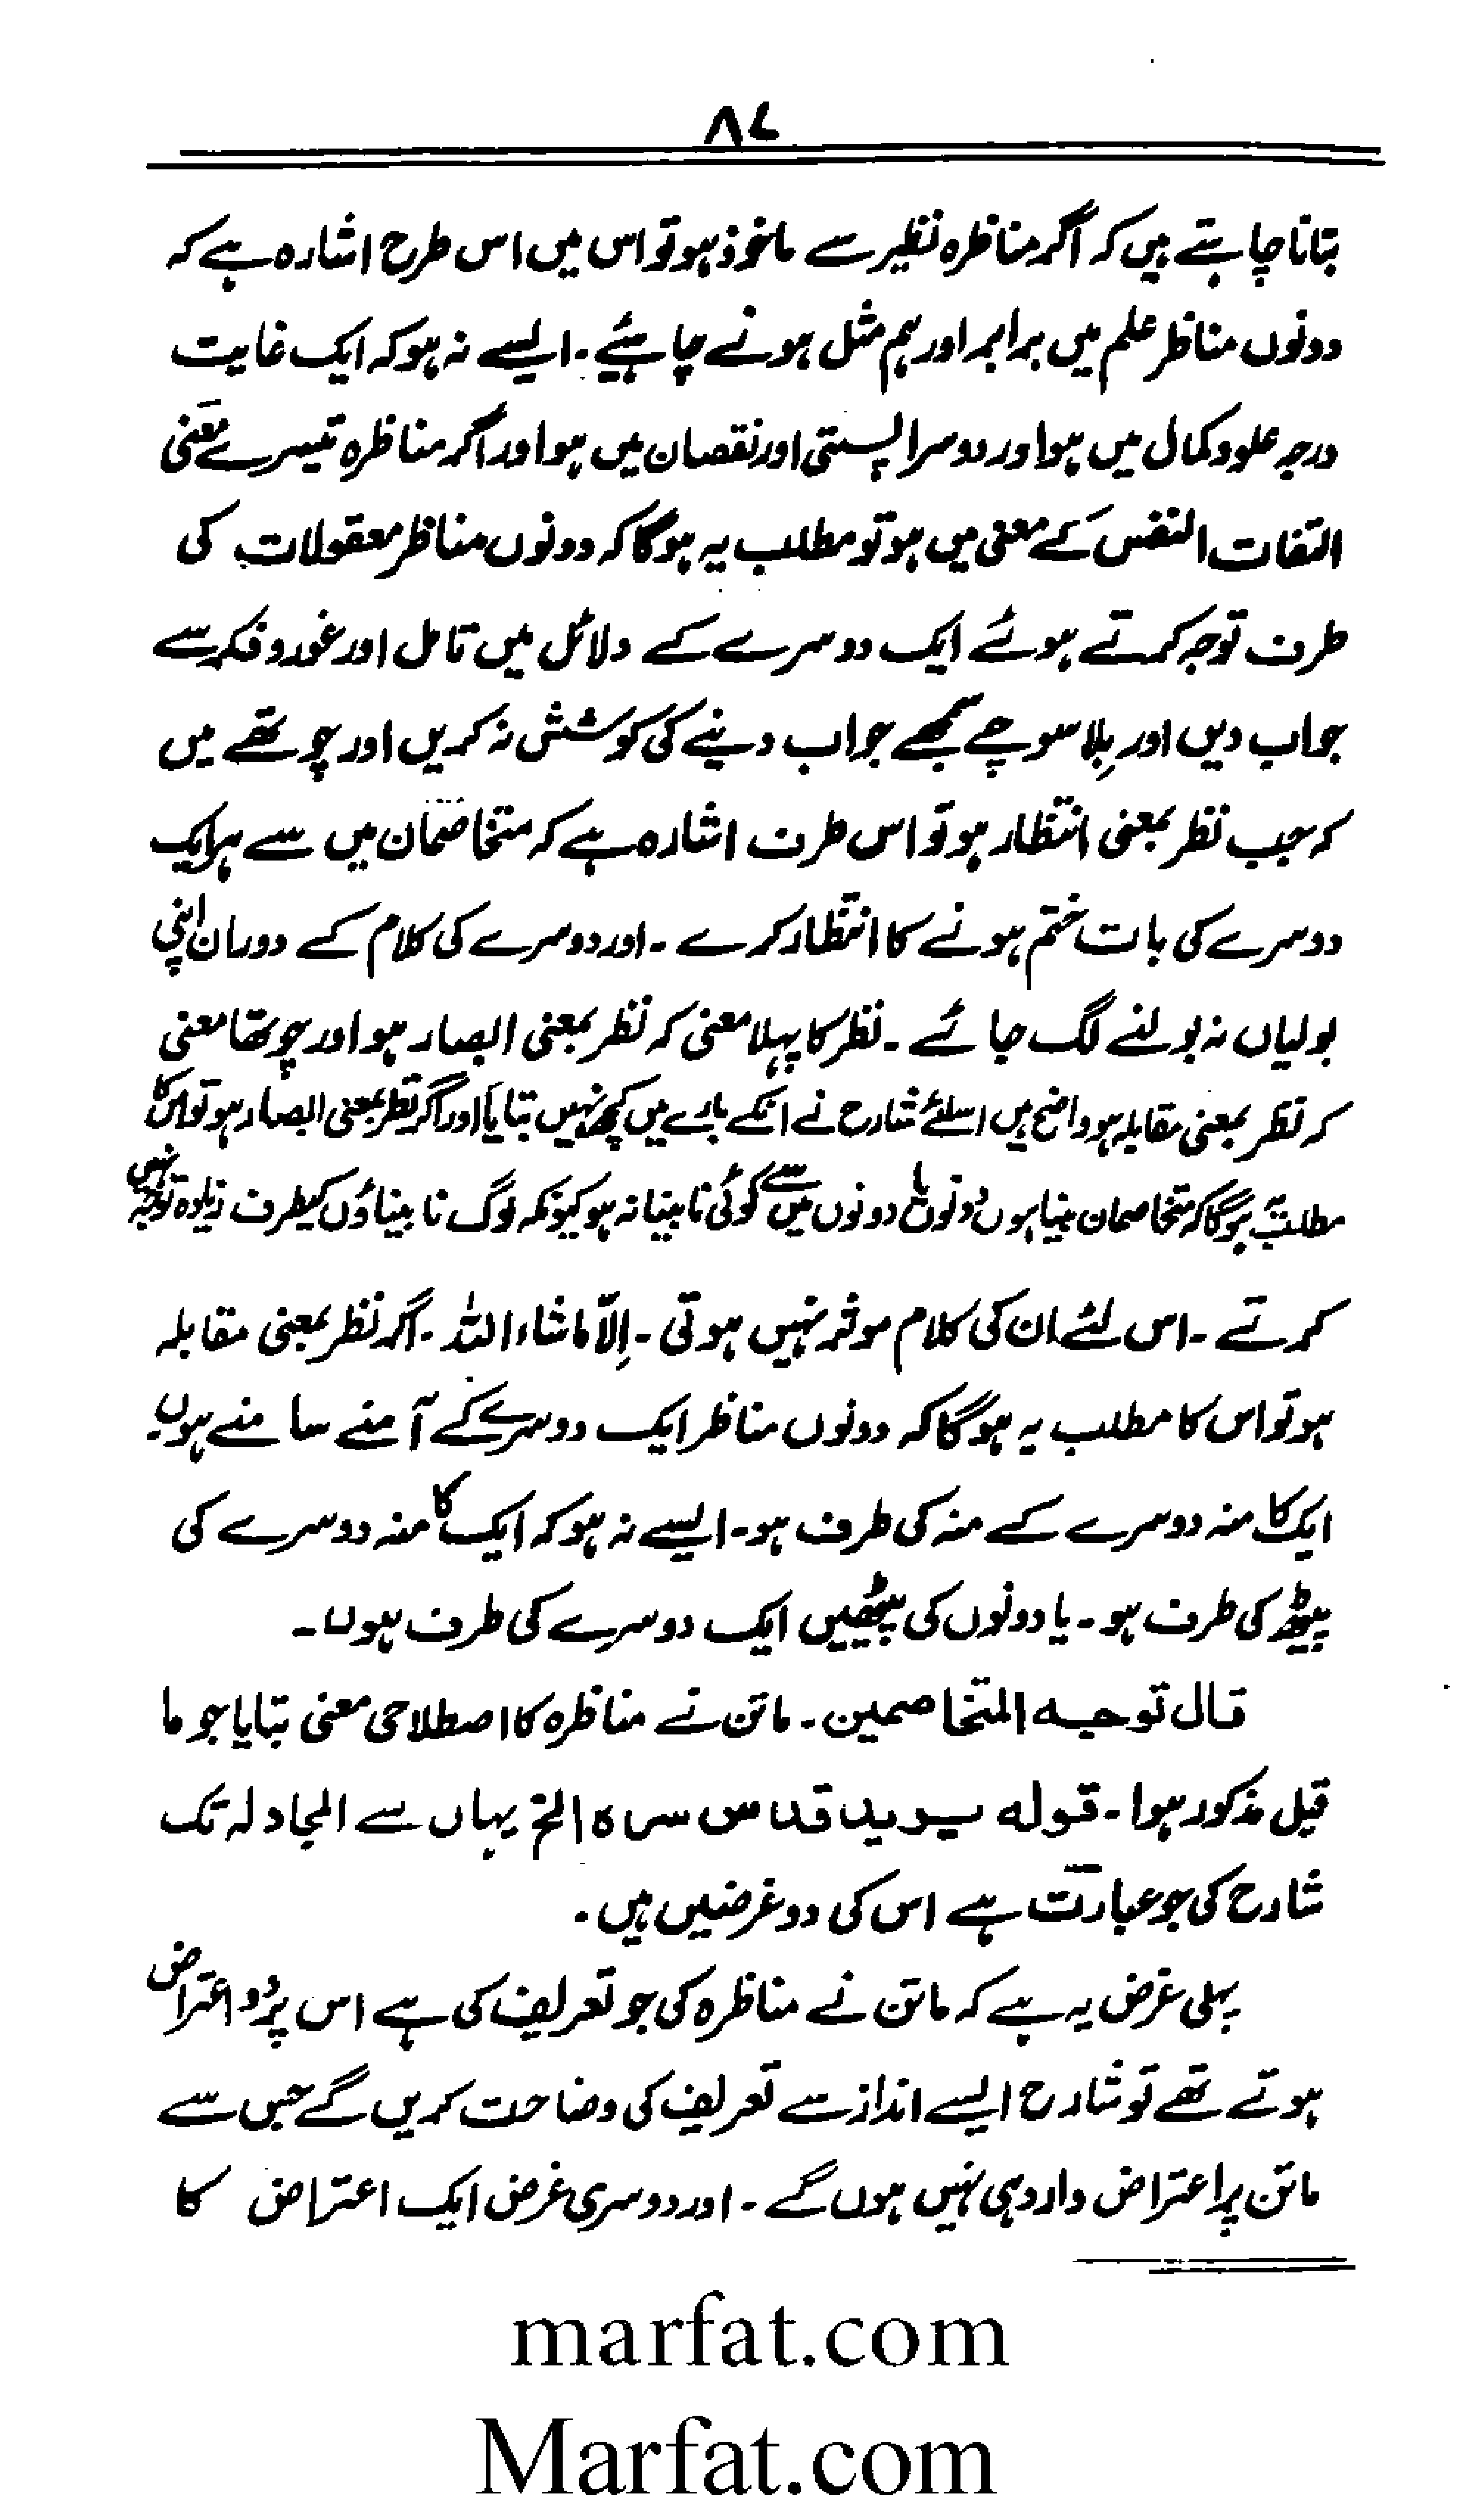 ۸۷
بتانا چاہتے ہیں کہ اگر مناظرہ نظیر سے ماخوذ ہو تو اس میں اس طرح اشارہ ہے کہ
دونوں مناظر علم میں برابر اور ہم مثل ہونے چاہیئے۔ ایسے نہ ہو کہ ایک غایت
درجہ علو و کمال میں ہو اور دوسرا پستی اور نقصان میں ہو اور اگر مناظرہ تیسرے معنی
التفات النفس کے معنی میں ہو تو مطلب یہ ہوگا کہ دونوں مناظر معقولات کی
طرف توجہ کرتے ہوئے ایک دوسرے کے دلائل میں تامل اور غور و فکر سے
جواب دیں اور بِلا سوچے سمجھے جواب دینے کی کوشش نہ کریں اور چوتھے میں
کہ جب نظر بمعنی انتظار ہو تو اس طرف اشارہ ہے کہ متخاصمان میں سے ہر ایک
دوسرے کی بات ختم ہونے کا انتظار کرے۔ اور دوسرے کی کلام کے دوران اپنی
بولیاں نہ بولنے لگ جائے۔ نظر کا پہلا معنی کہ نظر بمعنی ابصار ہو اور چوتھا معنی
کہ نظر بمعنی مقابلہ ہو واضح ہیں اسلئے شارح نے انکے بارے میں کچھ نہیں بتایا اور اگر نظر بمعنی ابصار ہو تو اس کا
مطلب یہ ہوگا کہ متخاصمان بینا ہوں دونوں یا دونوں میں سے کوئی نابینا نہ ہو کیونکہ لوگ نابیناؤں کیطرف زیادہ توجہ نہیں
کرتے۔ اس لئے ان کی کلام موثر نہیں ہوتی۔ اِلّا ماشاء اللہ۔ اگر نظر بمعنی مقابلہ
ہو تو اس کا مطلب یہ ہوگا کہ دونوں مناظر ایک دوسرے کے آمنے سامنے ہوں۔
ایک کا منہ دوسرے کے منہ کی طرف ہو۔ ایسے نہ ہو کہ ایک کا منہ دوسرے کی
پیٹھ کی طرف ہو۔ یا دونوں کی پیٹھیں ایک دوسرے کی طرف ہوں۔
قال توجہ المتخاصمین۔ ماتن نے مناظرہ کا اصطلاحی معنی بتایا جو ما
قبل مذکور ہوا۔ قولہ یرید قدس سرہ الخ یہاں سے المجادلہ تک
شارح کی جو عبارت ہے اس کی دو غرضیں ہیں۔
پہلی غرض یہ ہے کہ ماتن نے مناظرہ کی جو تعریف کی ہے اس پر دو اعتراض
ہوتے تھے تو شارح ایسے انداز سے تعریف کی وضاحت کریں گے جس سے
ماتن پر اعتراض وارد ہی نہیں ہوں گے۔ اور دوسری غرض ایک اعتراض کا
marfat.com
Marfat.com